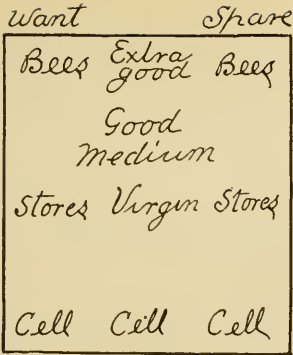 Want Spare
Bees Extra good Bees
Good
Medium
Stores Virgin Stores
Cell Cell Cell